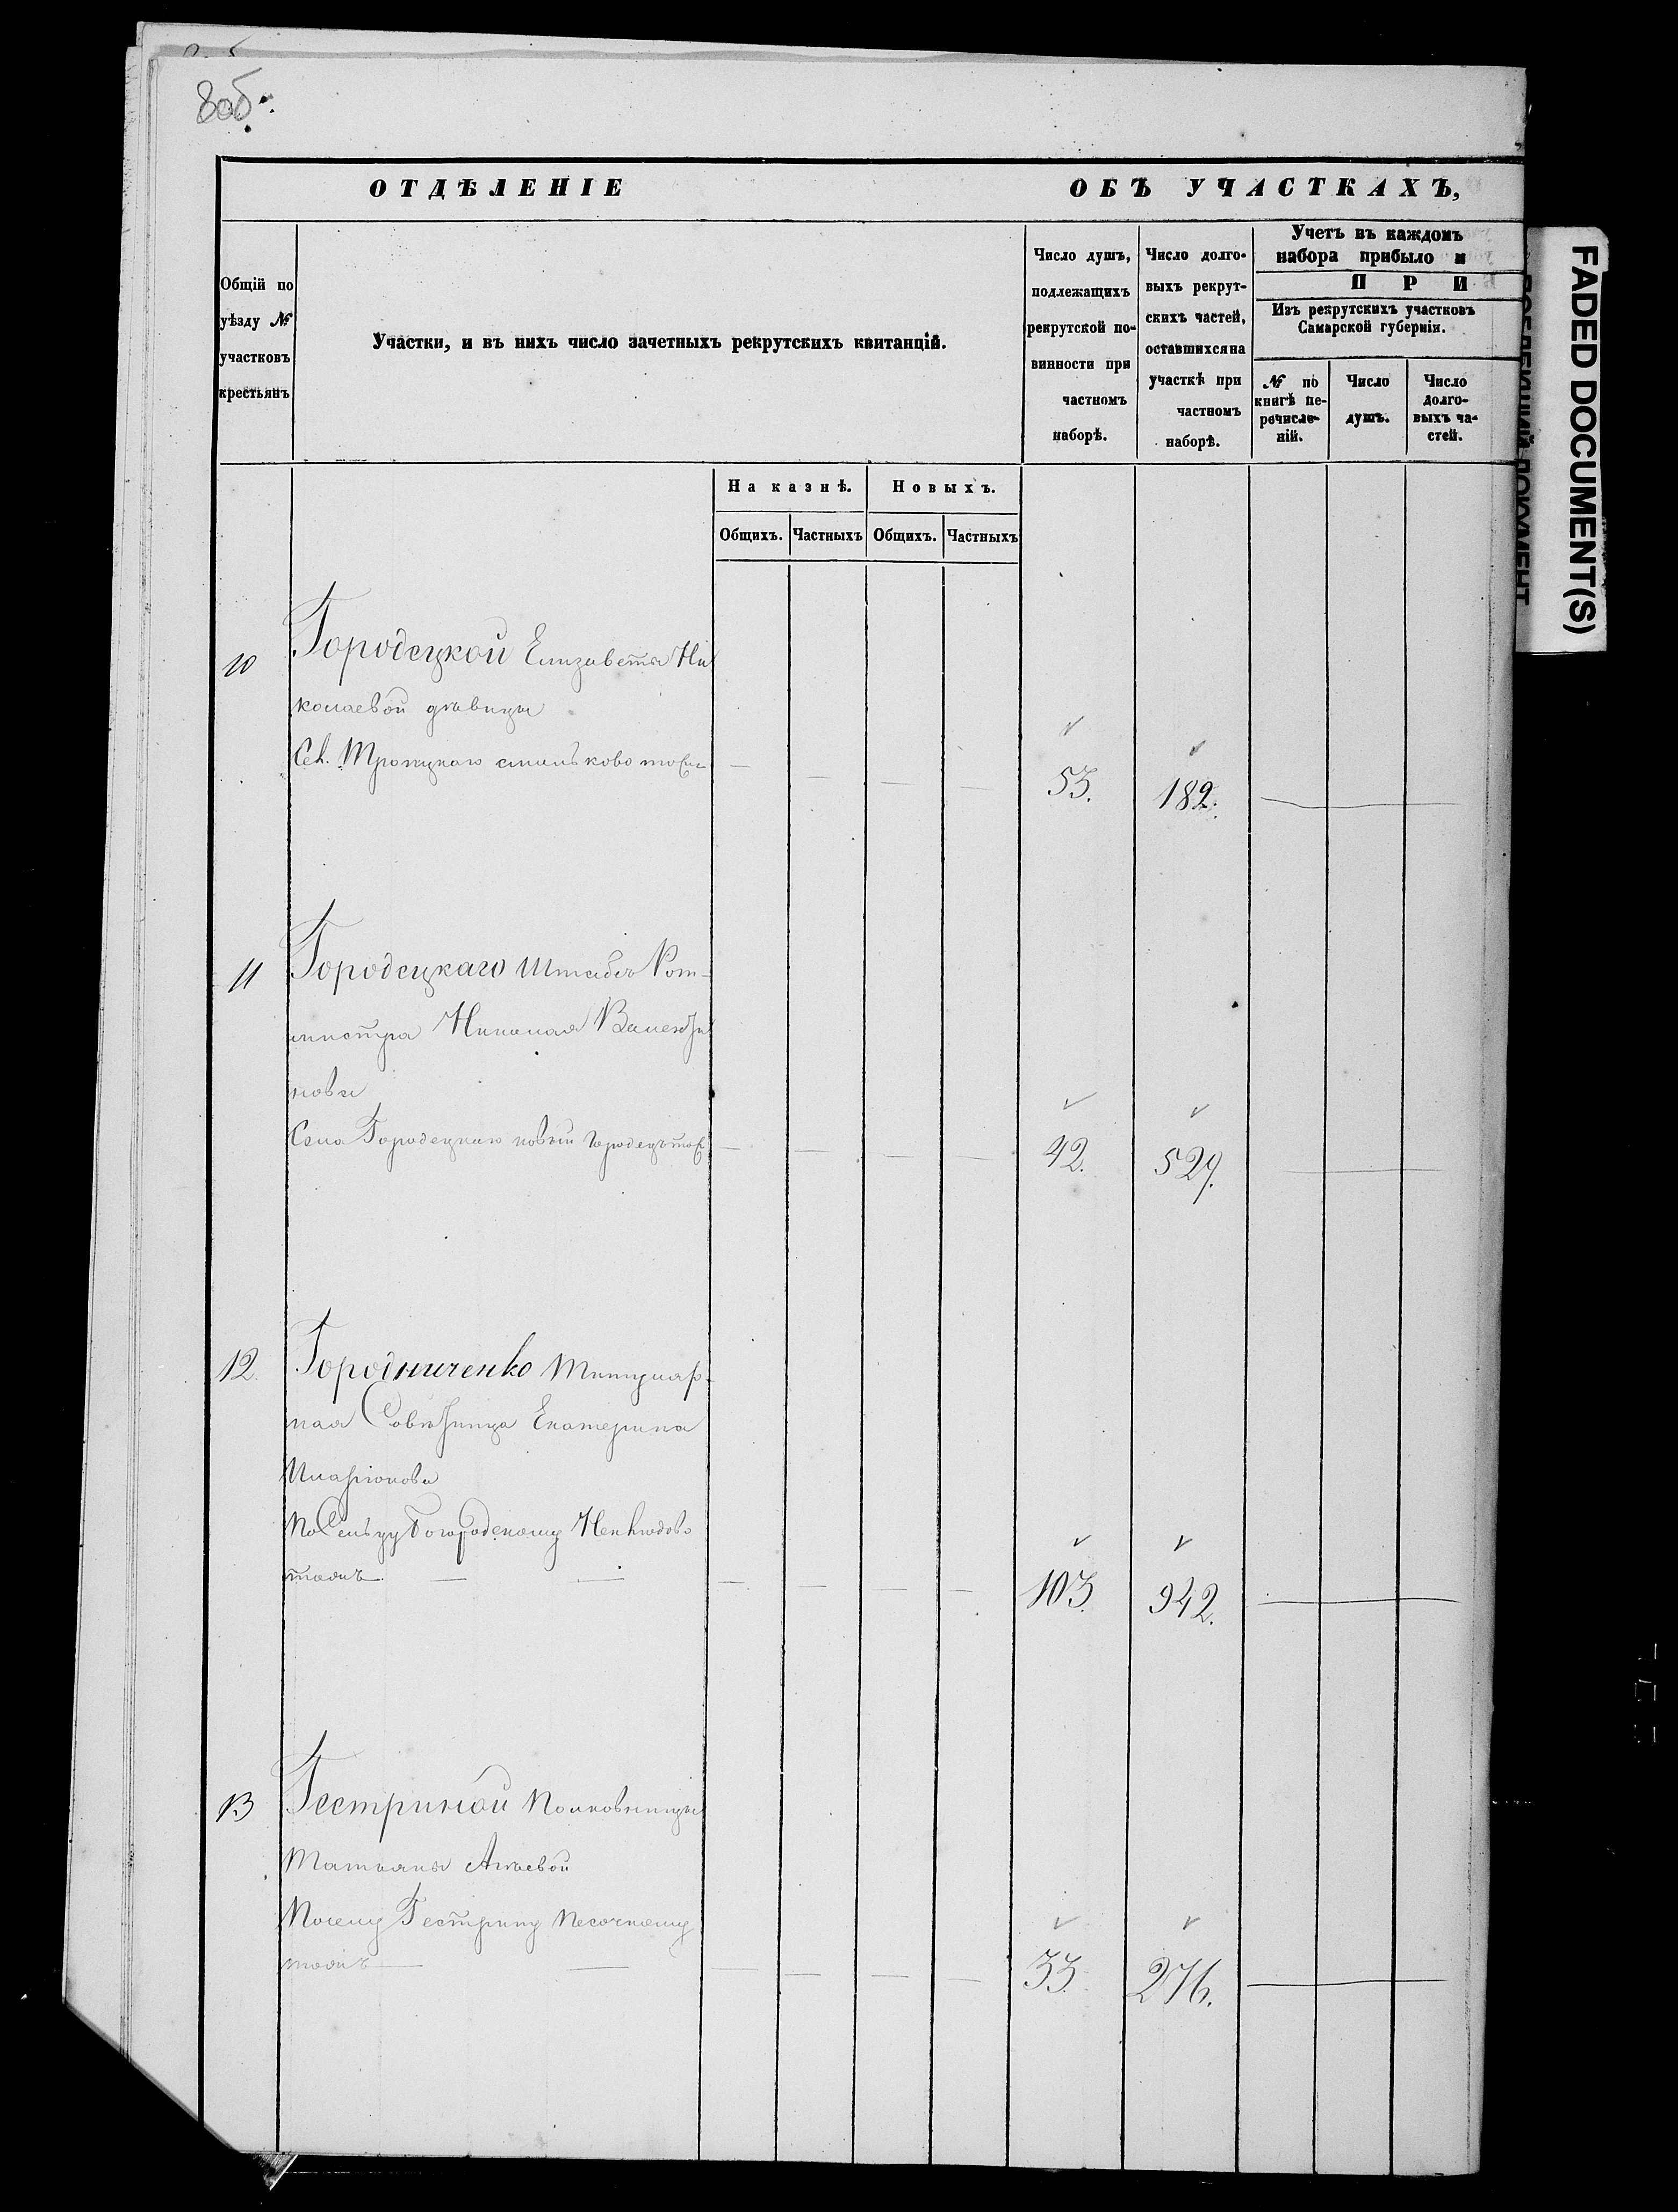 8об.
ОТДѢЛЕНІЕ ОБЪ УЧАСТКАХЪ,
Общій по уѣзду № участковъ крестьянъ
Участки, и въ нихъ число зачетныхъ рекрутскихъ квитанцій.
Число душъ, подлежащихъ рекрутской повинности при частномъ наборѣ.
Число долговыхъ рекрутскихъ частей, оставшихся на участкѣ при частномъ наборѣ.
Учетъ въ каждомъ
набора прибыло и
П Р И
Изъ рекрутскихъ участковъ
Самарской губерніи.
№ по книгѣ перечисленій.
Число душъ.
Число долговыхъ частей.
На казнѣ. Новыхъ.
Общихъ. Частныхъ Общихъ. Частныхъ
10 Городецкой Елизаветы Ни
колаевой дѣвицы
Сел. Троицкаго 53. 182.
11 Городецкаго Штабсъ Рот-
мистра Николая Валенти
нова
Села Городецкаго новый Городецъ тожъ 42. 529.
12. Городниченко Титуляр-
ная Совѣтница Екатерина
Иларіонова
По Сельцу Богородскому Неклюдово
тожъ 103. 942.
13 Гестриной Полковницы
Татьяны
Гестрину Песочному
тожъ 33. 276.
FADED DOCUMENT(S)